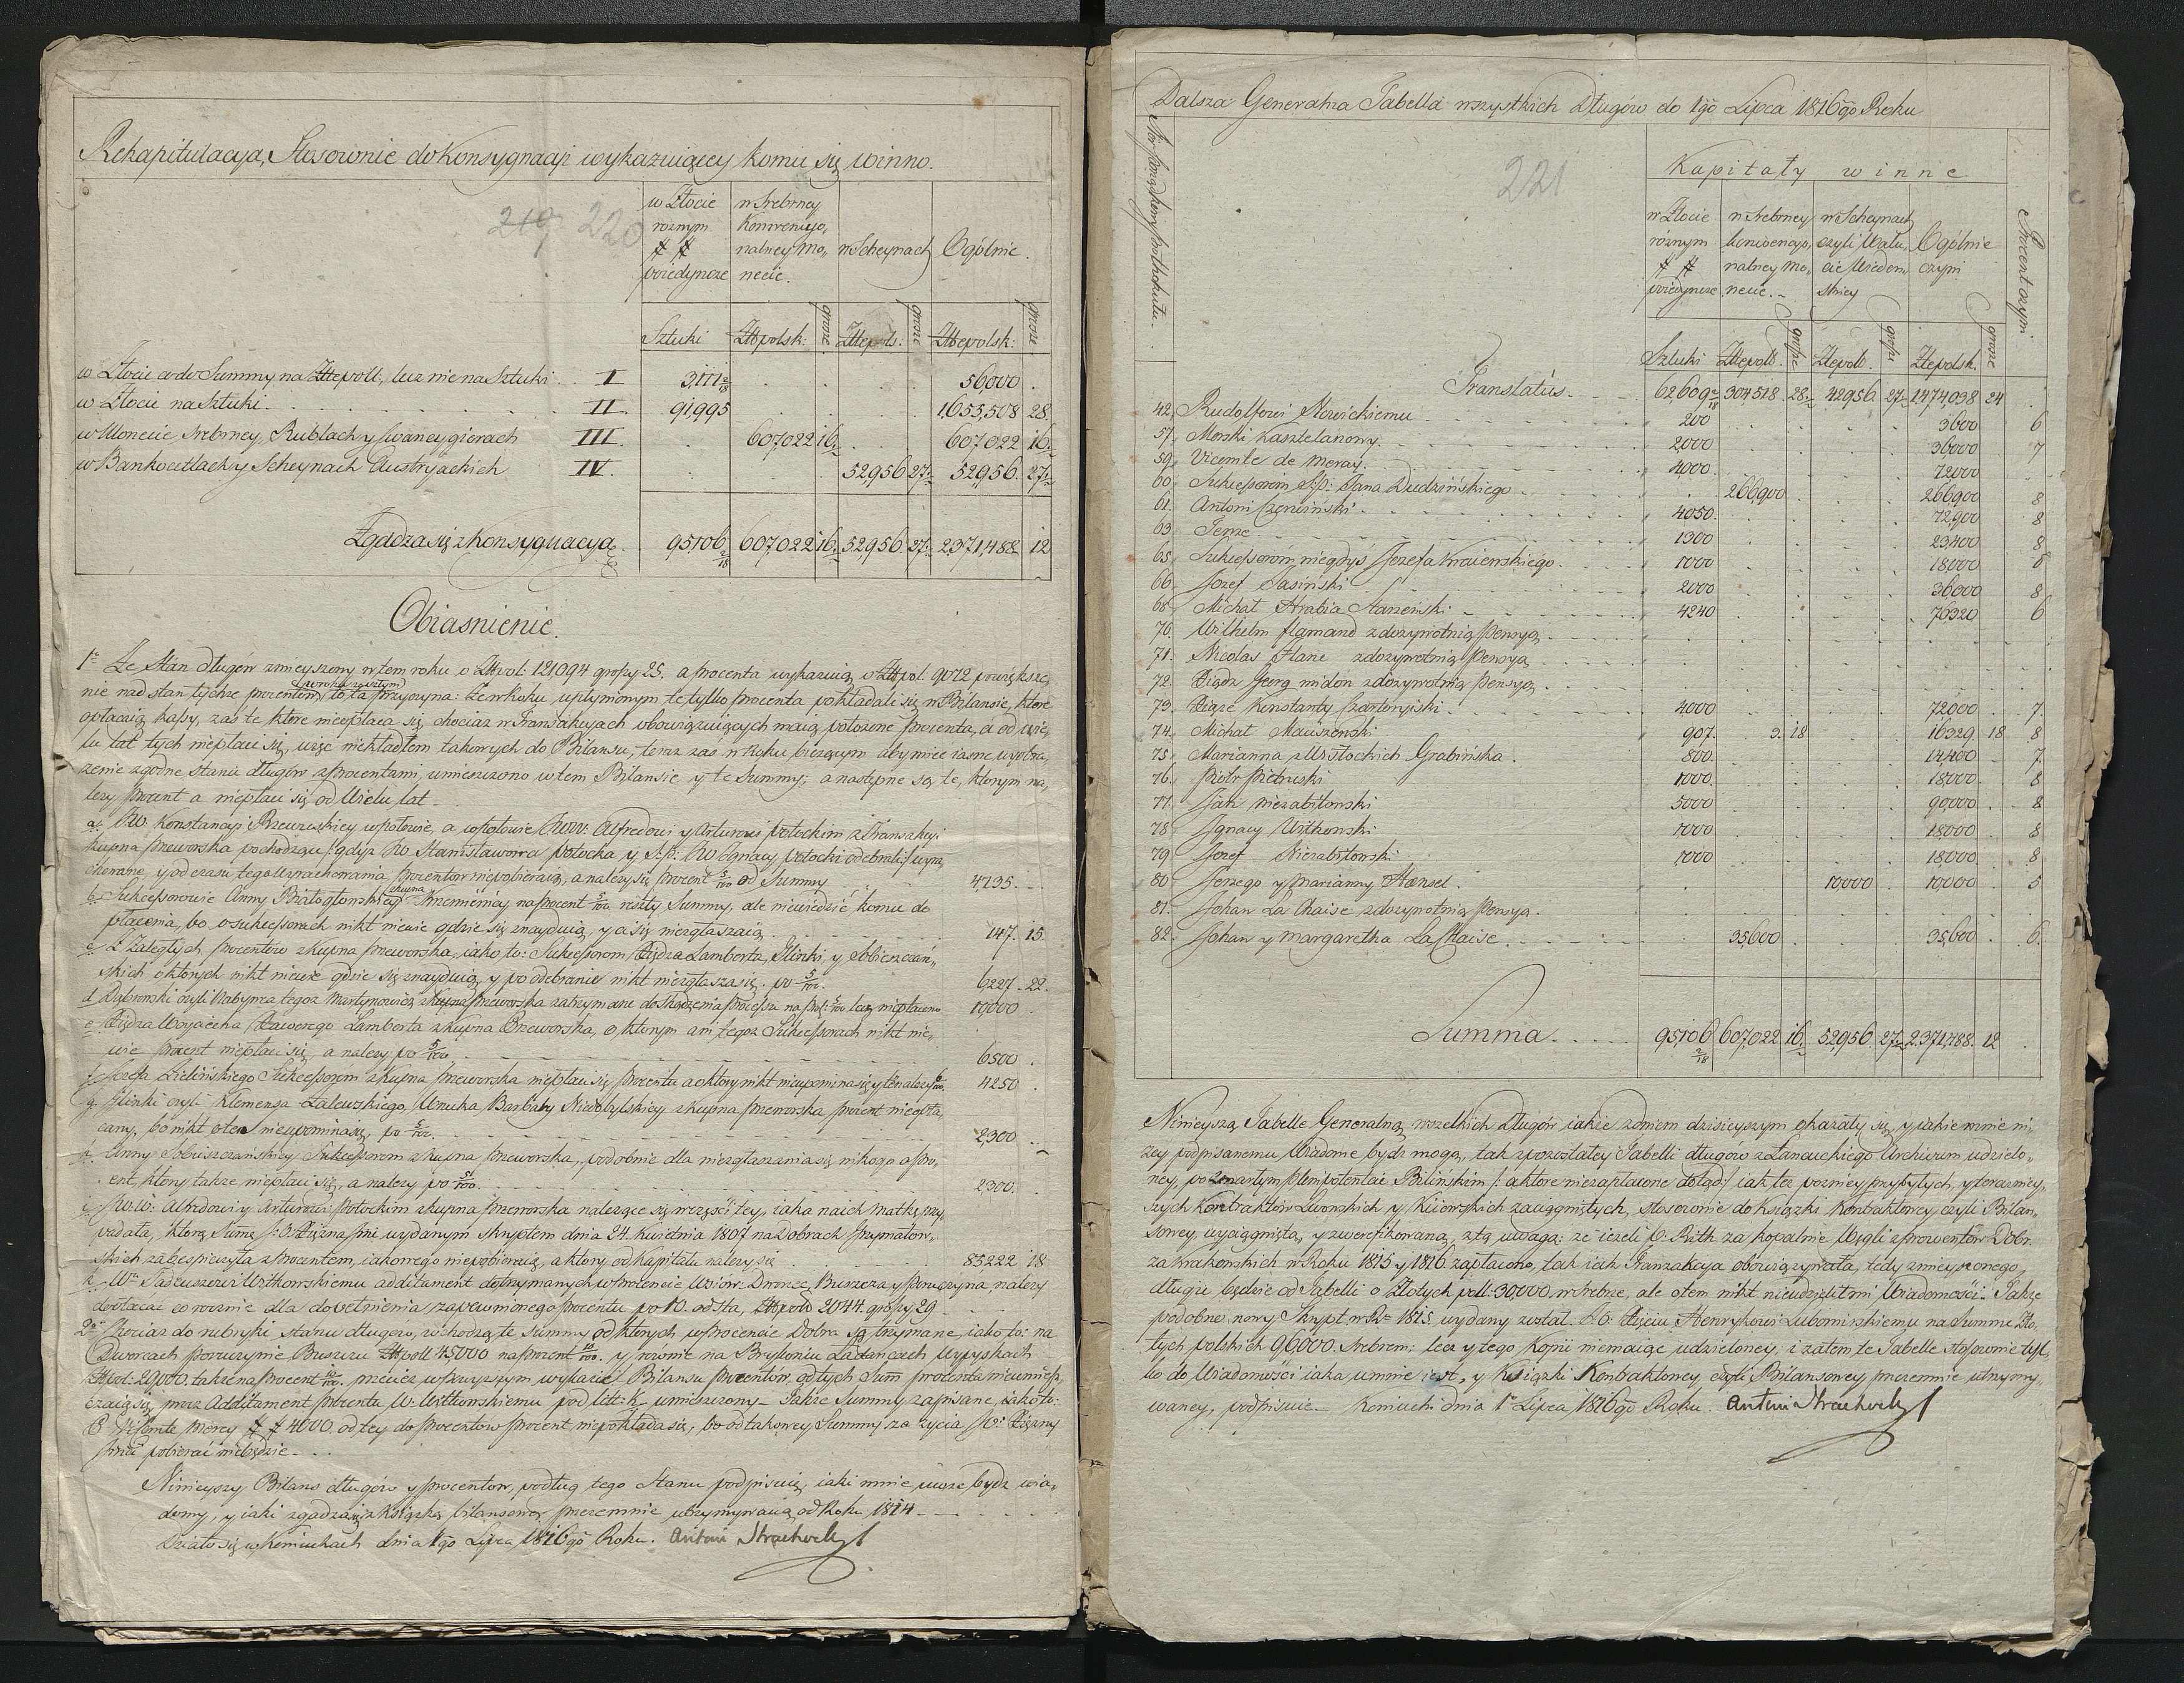 Rekapitulacya, Stosownie do Konsygnacyi wykazuiącey komu się winno.
219 220
w Złocie roznym # # poiedyncze
w Srebrney Konwencyonalney Monecie.
w Scheynach
Ogólnie.
Sztuki Złtpolsk: grosze Złtepols: grosze Złtepolsk: grosze
w Złocie co do Summy na Złtepoll, lecz nie na Sztuki . . I 3111 2/18 . . . . 56000 .
w Złocie na Sztuki . . . . II 91,995 . . . . 1,653,508 28
w Monecie Srebrney, Rublach y Swancygierach III . 607,022 16. . . 607022 16.
w Bankocetlach y Scheynach Austryackich IV. . . . 52,956 27 52,956. 27
Zgadza się z Konsygnacyą. 95,106 2/18 607,022 16. 52,956 27. 2,371,488 12
Obiasnienie.
1º Ze Stan długów zmieyszony w tem roku o Złtpol: 121,094 groszy 25. a procenta wykazuią o Złtpol. 9072 powiększe,
nie nad stan tychże procentów w roku zeszłym, to ta przyczyna: że w Roku upłynionym, te tylko procenta pokładali się w Bilansie, które
opłacaią kassy, zaś te które nieopłaca się, chociaż w Tranzakcyach obowiązuiących maią położone procenta, a od wie,
lu lat tych niepłaci się, więc niekładłem takowych do Bilansu, teraz zaś w Roku bieżącym aby mieć iasne wyobra,
żenie zgodne stanie długów z procentami, umieszczono w tem Bilansie y te Summy; a następne są te, którym na,
leży procent a niepłaci się od Wielu lat.
a. JW. Konstancyi Rzewuskiey w połowie, a w połowie JWW. Alfredowi y Arturowi Potockim z Tranzakcyi
kupna Przeworska pochodzącu /: gdyż JW Stanisławowa Potocka y S.P. JW Ignacy Potocki odebrali :/ wyra,
chowane, y od czasu tego wyrachowania procentów niepobieraią, a należy się procent 5/100 od Summy . . . 4,135. .
b. Sukcessorowie Anny Białogłowskiey z kupna Przeworska na procent 5/100 reszty Summy, ale niewiedzić komu do
płacenia, bo o Sukcessorach nikt niewie gdzie się znayduią, y ci się niezgłaszaią . . . 147. 15
c. Z zaległych procentów z kupna Przeworska, iako to: Sukcessorom Xiędza Lamberta, Glinki, y Sobieszczań,
skich o których nikt niewie gdzie się znayduią, y po odebranie nikt niezgłasza się. po 5/100. 6,227 . 22.
d. Dąbrowski czyli Nabywca tegoż Martynowicz z Kupna Przeworska zatrzymane do skączenia processu na pro: 5/100 lecz niepłacono 10,000
e. Xiędza Woyciecha Xawerego Lamberta z kupna Przeworska, o którym ani tegoż Sukcessorach nikt nie,
wie procent niepłaci się, a należy po 5/100 . . . 6500 .
f. Jozefa Zielińskiego Sukcessorom z Kupna Przeworska niepłaci się procentu a o który nikt nieupomina się y ten należy 6/100. 4250 .
g. Glinki czyli Klemensa Zalewskiego, Wnuka Barbary Niedobylskiey z kupna Przeworska procent nieopła,
cany, bo nikt o ten nieupomina się, po 5/100. . . . 2,300 .
h. Anny Sobieszczańskiey Sukcessorom z kupna Przeworska, podobnie dla niezgłaszania się nikogo o pro,
cent, który także niepłaci się, a należy po 5/100. . . . 2,300.
i. JWW: Alfredowi y Arturowi Potockim z kupna Przeworska należące się w części tey, iaka na ich Matkę przy,
padała, którą Summę J: O. Xiężna Pni wydanym Skryptem dnia 24. Kwietnia 1807 na Dobrach Szymanow,
skich zabezpieczyła z procentem, iakowego niepobieraią, a który od Kapitału należy się . . . 85222 18
k. Wu Tadeuszowi Witkowskiemu additament do trzymanych w procencie Wsiów: Dworzec, Buszcza y Poruczyna, należy
dopłacać co rocznie dla dopełnienia zapewnionego procentu po 10. od sta, Złtpoll 2044. groszy 29 .
2º Chociaż do rubryki stanu długów, wchodzą te Summy od których w procencie Dobra są trzymane, iako to: na
Dworcach Poruczynie Buszczu Złtpoll 45,000 na procent 10/100. y rocznie na Brykoniu Ładańcach Wypyskach
Złtpol: 20,000. także na procent 10/100, przecież w powyższym wykazie Bilansu procentów, od tych Summ procenta nieumiesz,
czaią się, prócz Additament procentu W. Witkowskiemu pod Litt: K umieszczony – Także Summy zapisane, iako to:
3º Vicomte Merey # # 4000. od tey do procentów procent niepokłada się, bo od takowey Summy za życia JO: Xiężny
Pni pobierać niebędzie .
Ninieyszy Bilans długów y procentów, podług tego Stanu podpisuię, iaki mnie może bydz wia,
domy, y iaki zgadza się z Książką bilansową przezemnie utrzymywaną od Roku 1814 .
Działo się w Keniuchach dnia 1go Lipca 1816go Roku. Antoni Strachocki
Dalsza Generalna Tabella wszystkich Długów do 1go Lipca 1816go Roku
221
Kapitały winne
w Złocie róznym # # poiedyncze
w Srebrney konwencyonalney Monecie.
w Scheynach czyli Walucie Wiedenskiey
Ogólnie czyni
Procent czyni
Sztuki Złtepols. grosze Złtepols. grosze Złtepolsk. grosze
Translatus . . 62,609 2/18 304518 28. 42956 27 1,474,098 24
42. Rudolfowi Nowickiemu . . 200 . . . . 3600 . 6
57. Morski Kasztelanowy . . 2000 . . . . 36,000 . 7
59. Vicomte de Meray. . . 4000. . . . . 72000
60. Sukcessorom S:p: Jana Dudzińskiego . . . 266,900 . . . 266900 . 8
61. Antoni Czeniński . . 4050. . . . . 72,900 . 8
63. Temże . . 1300 . . . . 23,400 . 8
65. Sukcessorom niegdyś Jozefa Kraiewskiego. . 1000 . . . . 18000 . 8
66. Jozef Jasiński . . 2000 . . . . 36000 . 8
68. Michał Hrabia Starzeński . . 4240 . . . . 76320 . 6
70. Wilhelm Hamand z dożywotnią Pensyą . .
71. Nicolas Hane z dożywotnią Pensyą . .
72. Xiądz Georg Midon z dożywotnią Pensyą . .
73. Xiąże Konstanty Czartoryiski . . 4000 . . . . 72000 . 7.
74. Michał Mauszenski . . 907. 3. 18 . . 16329 18 8
75. Marianna z Wisłockich Grabińska . 800. . . . . 14,400 . 7
76. Piotr Pietruski . 1000. . . . . 18000. . 8
77. Jan Niezabitowski 5000 . . . . 90000. . 8
78. Ignacy Witkowski 1000 . . . . 18000. . 8
79. Jozef Niezabitowski 1000 . . . . 18,000. . 8
80. Jerzego y Marianny Hænsel . . . . 10000 . 10,000 . 5
81. Johan La Chaise z dożywotnią Pensyą .
82. Johan y Margaretha La Chaise . . . 35600 . . . 35,600 . 6.
Summa . . . 95,106 2/18 607,022 16. 52,956. 27 2,371,488. 12
Ninieyszą Tabellę Generalną wszelkich Długów iakie z dniem dzisieyszym okazały się, y iakie mnie ni,
żey podpisanemu Wiadome bydz mogą, tak z pozostałey Tabelli długów z Łancuckiego Archiwum udzielo,
ney, po zmarłym Plenipotencie Bilińskim /: a które niezapłacone dotąd :/ iak też pozniey przybyłych, y terazniey,
szych Kontraktów Lwowskich y Kiiowskich zaciągniętych, stosownie do Książki Kontraktowey czyli Bilan,
sowey, wyciągniętą, y zweryfikowaną, z tą uwagą: że ieżeli P. Rith za kopalnie Węgli z prowentów Dobr
za Krakowskich w Roku 1815 y 1816. zapłacono, tak iak Tranzakcya obowiązywała, tedy zmieyszonego,
długu będzie od Tabelli o Złotych poll: 30,000, w Srebrze, ale o tem nikt nieudzielił mi Wiadomości. Także
podobno nowy Skrypt w Ru 1815. wydany został. J.O. Xięciu Henrykowi Lubomirskiemu na Summę Zło,
tych polskich 96000. Srebrem: lecz y tego Kopii niemaiąc udzieloney, i zatem te Tabelle stosownie tyl,
ko do Wiadomości iaka u mnie iest, y Książki Kontraktowey czyli Bilansowey przezemnie utrzymy,
waney, podpisuie – Keniuchi dnia 1º Lipca 1816go Roku. Antoni Strachocki